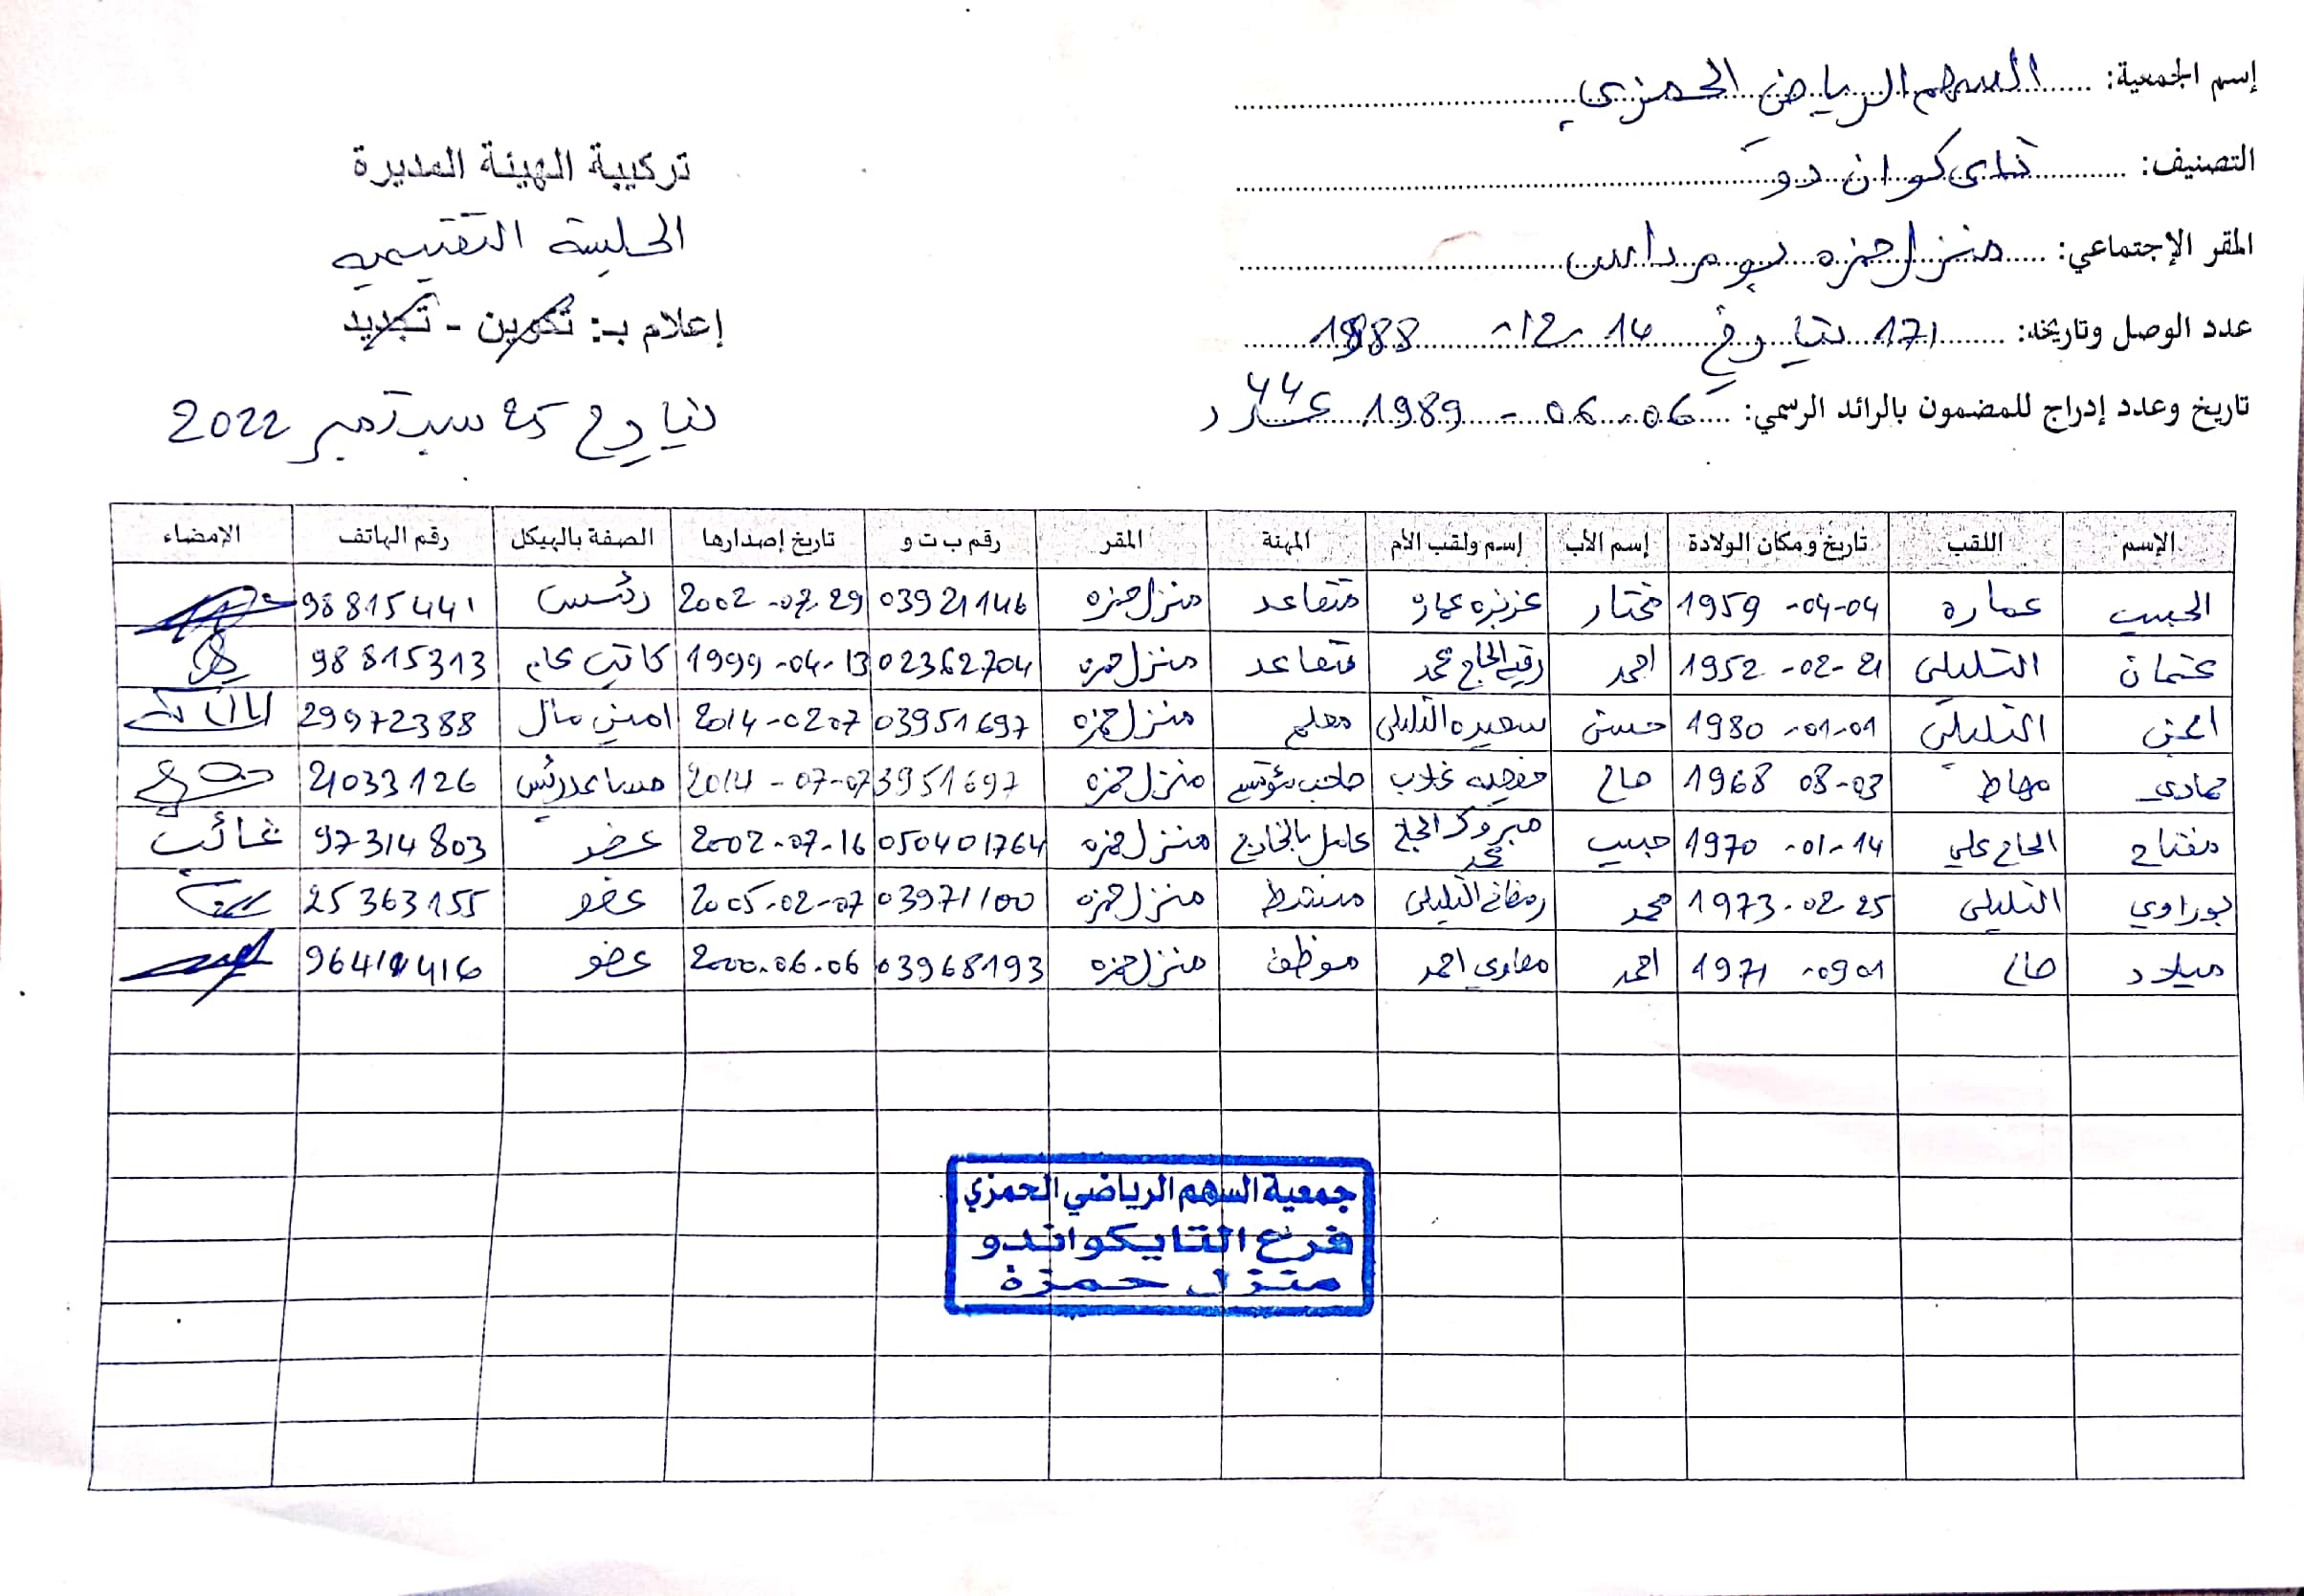 إسم الجمعية: السهم الرياضي الحمزي
التصنيف: تاي كوان دو
المقر الإجتماعي: منزل حمزه بومرداس
عدد الوصل وتاريخه: 171 بتاريخ 14 -12- 1988
تاريخ وعدد إدراج للمضمون بالرائد الرسمي: 06-06-1989 عدد 44
تركيبة الهيئة المديرة
الجلسة التقييمية
إعلام بـ: تكوين - تجديد
بتاريخ 25 سبتمبر 2022
الإسم اللقب تاريخ ومكان الولادة إسم الأب إسم ولقب الأم المهنة المقر رقم ب ت و تاريخ إصدارها الصفة بالهيكل رقم الهاتف الإمضاء
الحبيب عماره 04-04- 1959 مختار عزيزه عماره متقاعد منزل حمزه 03921146 29-07-2002 رئيس 98815441
عثمان التليلي 21-02- 1952 احمد رقية الحاج محمد متقاعد منزل حمزه 02362704 13-04-1999 كاتب عام 98815313
التليلي 01-01- 1980 حسن سعيده التليلي معلم منزل حمزه 03951697 07-02-2014 امين مال 29972388
حمادي 03-08 1968 صالح منزل حمزه 3951697 07-07-2014 مساعد رئيس 21033126
مفتاح الحاج علي 14-01- 1970 حبيب مبروكه الحاج محمد عامل بالخارج منزل حمزه 050401764 16-07-2002 عضو 97314803 غائب
بوراوي التليلي 25-02-1973 محمد التليلي منشط منزل حمزه 03971100 07-02-2005 عضو 25363155
ميلاد صالح 01-09- 1971 احمد احمد موظف منزل حمزه 03968193 06.06.2000 عضو
جمعية السهم الرياضي الحمزي
فرع التايكواندو
منزل حمزة